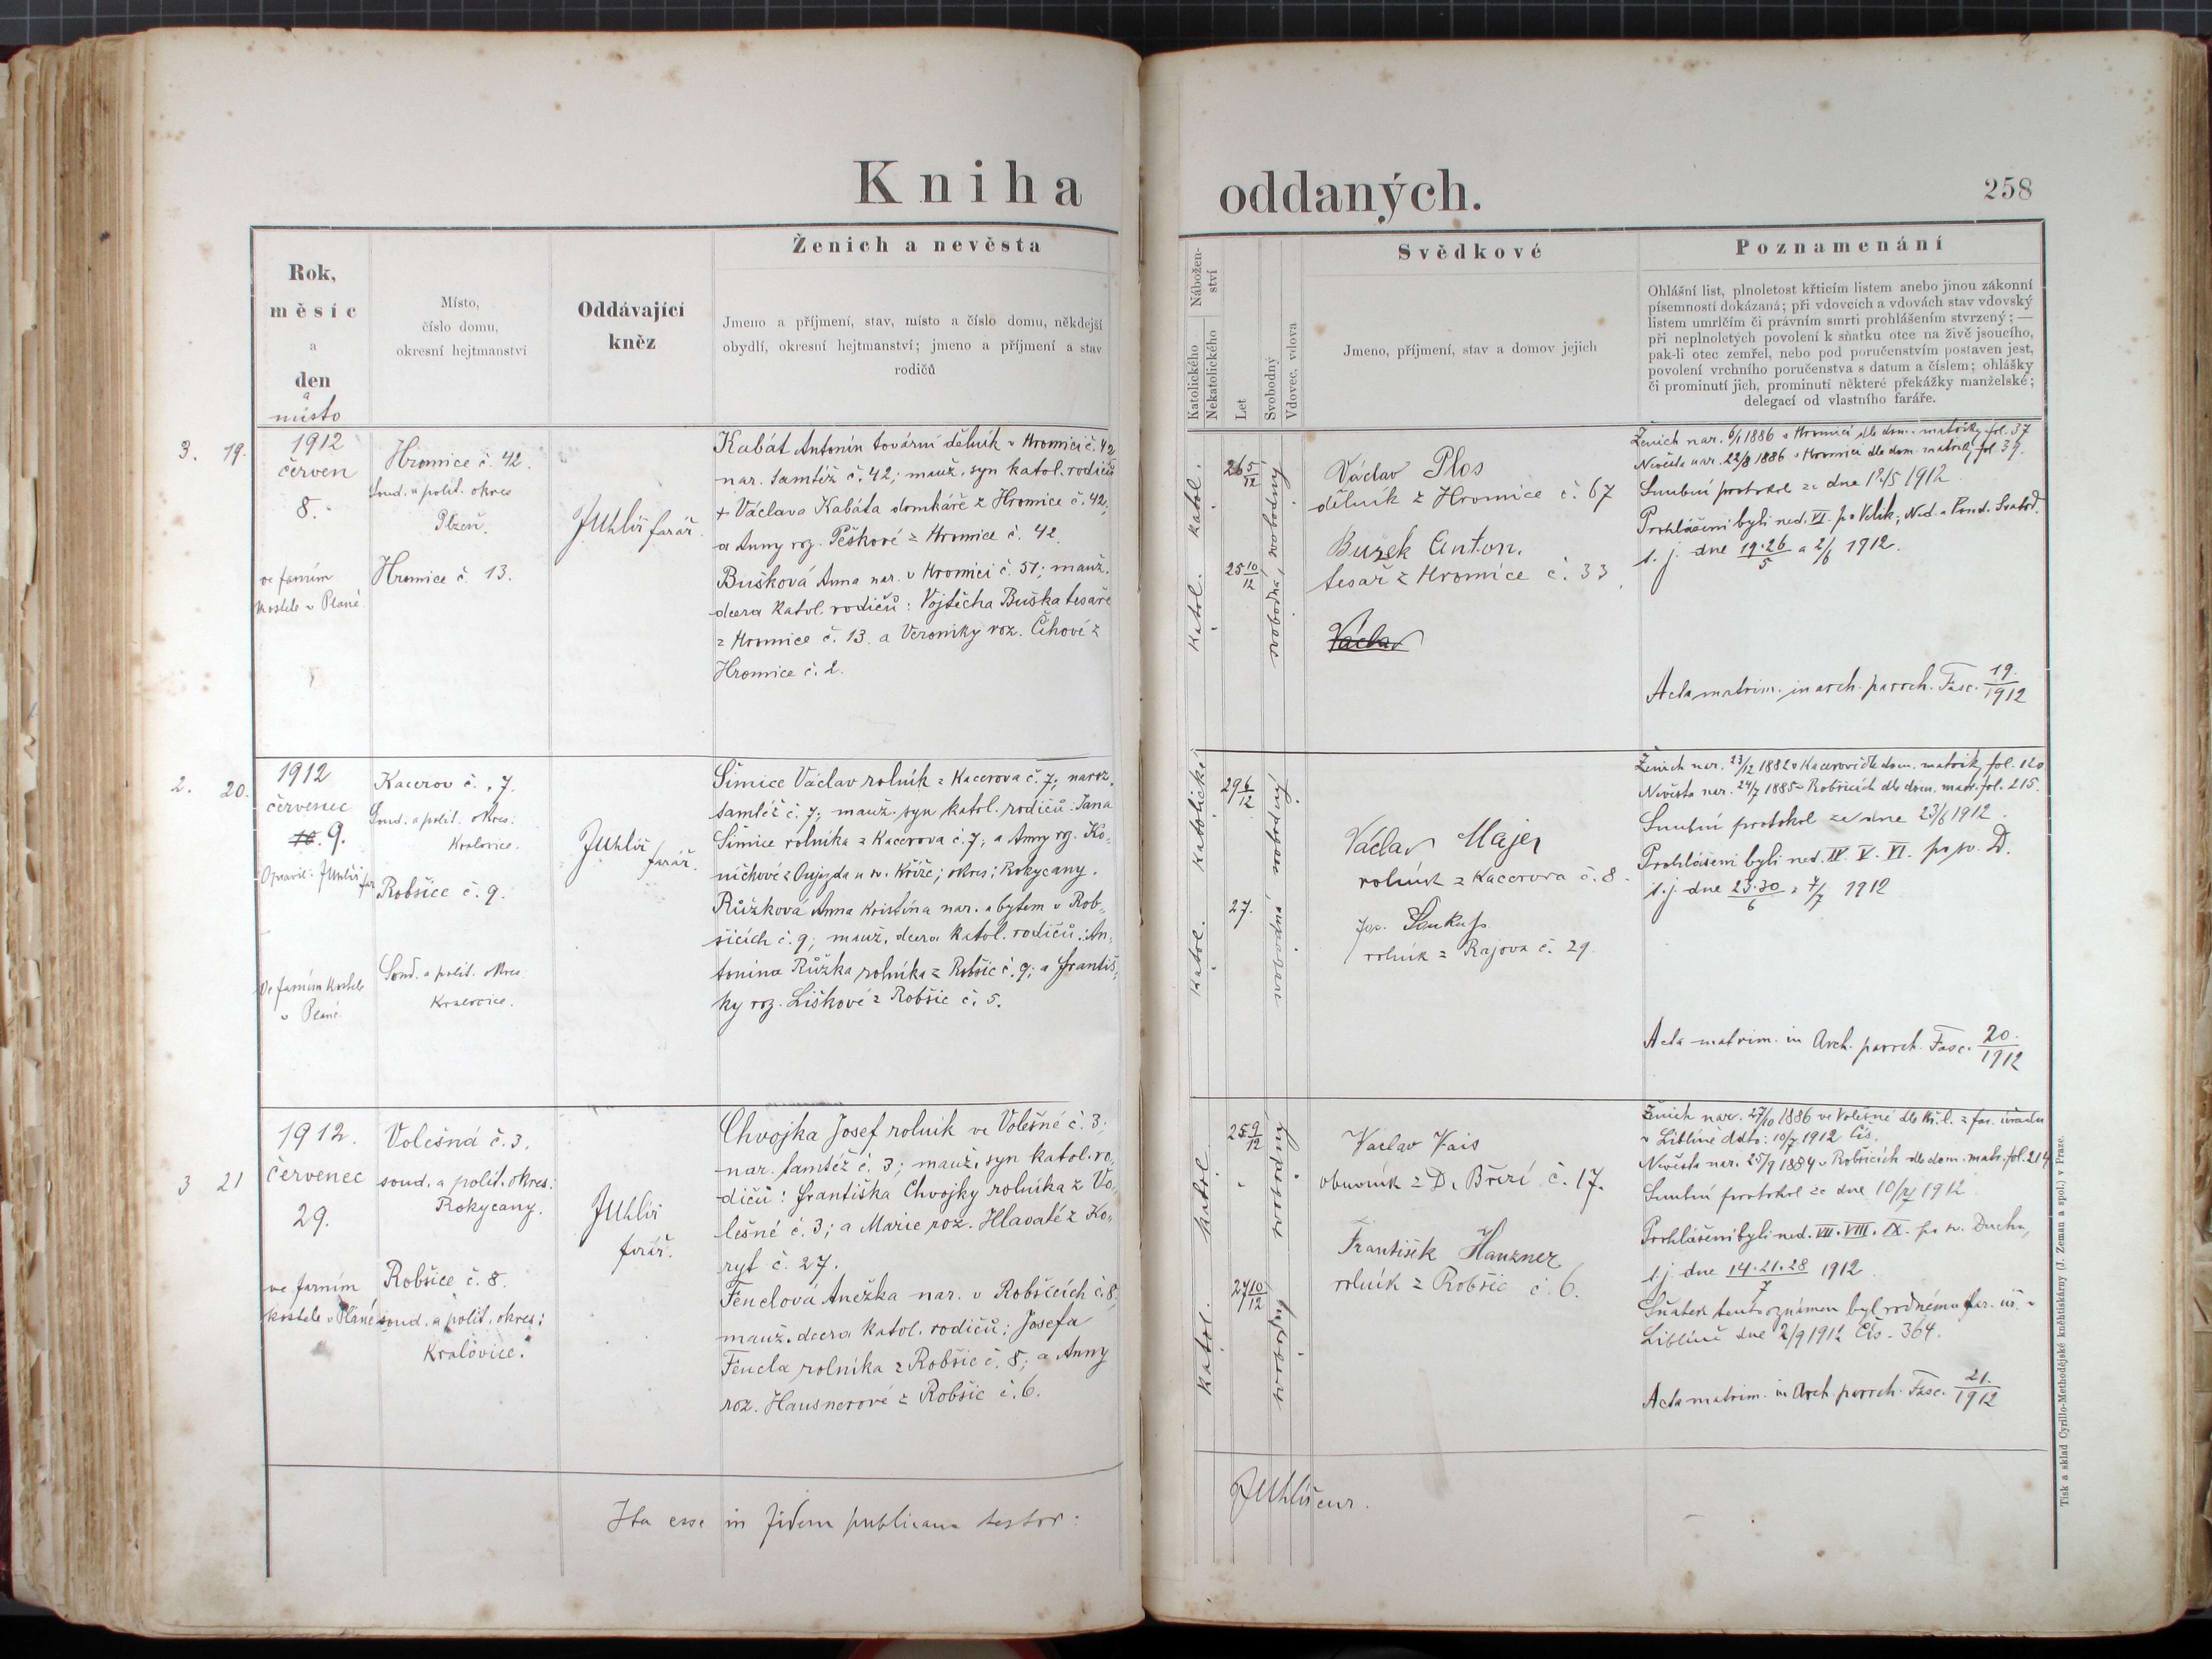 Kniha oddaných.
258
Rok,
měsíc
a
den
a
místo
Místo,
číslo domu,
okresní hejtmanství
Oddávající
kněz
Ženich a nevěsta
Jmeno a příjmení, stav, místo a číslo domu, někdejší
obydlí, okresní hejtmanství; jmeno a příjmení a stav
rodičů
Nábožen-
ství
Katolického
Nekatolického
Let
Svobodný
Vdovec, vdova
Svědkové
Jmeno, příjmení, stav a domov jejich
Poznamenání
Ohlášní list, plnoletost křticím listem anebo jinou zákonní
písemností dokázaná; při vdovcích a vdovách stav vdovský
listem umrlčím či právním smrti prohlášením stvrzený; —
při neplnoletých povolení k sňatku otce na živě jsoucího,
pak-li otec zemřel, nebo pod poručenstvím postaven jest,
povolení vrchního poručenstva s datum a číslem; ohlášky
či prominutí jich, prominutí některé překážky manželské;
delegací od vlastního faráře.
3. 19.
1912
červen
8.
ve farním
kostele v Plané
Hromice č. 42.
soud. a polit. okres
Plzeň.
Hromice č. 13.
JUhlíř farář.
Kabát Antonín tovární dělník v Hromici č. 42
nar. tamtéž č. 42; manž. syn katol. rodičů
+ Václava Kabáta domkáře z Hromice č. 42;
a Anny roz. Peškové z Hromice č. 42.
Bušková Anna nar. v Hromici č. 51; manž.
dcera katol. rodičů: Vojtěcha Buška tesaře
z Hromice č. 13. a Veroniky roz. Čihové z
Hromice č. 2.
katol. katol.
26 5/12
25 10/12
svobodná, svobodný
Václav Plos
dělník z Hromice č. 67
Bušek Anton.
tesař z Hromice č. 33
Václav
Ženich nar. 6/1 1886 v Hromici dle dom. matriky fol. 37
Nevěsta nar. 22/8 1886 v Hromici dle dom. matriky fol. 39.
Snubní protokol ze dne 12/5 1912.
Prohlášeni byli ned. VI. po Velik; Ned. a Pond. Svatod.
t. j. dne 19·26/5 a 2/6 1912.
Acta matrim. in arch. paroch. Fasc. 19./1912
2. 20.
1912
červenec
10. 9.
Opravil: JUhlíř far
Ve farním kostele
v Plané
Kacerov č. 7.
Soud. a polit. okres:
Kralovice.
Robšice č. 9.
Soud. a polit. okres
Kralovice.
JUhlíř
farář.
Šimice Václav rolník z Kacerova č. 7; naroz.
tamtéž č. 7; manž. syn katol. rodičů: Jana
Šimice rolníka z Kacerova č. 7; a Anny roz. Ko-
níchové z Oujezda u sv. Kříže; okres: Rokycany.
Růžková Anna Kristína nar. a bytem v Rob-
šicích č. 9; manž. dcera katol. rodičů: An-
tonína Růžka rolníka z Robšic č. 9; a Františ-
ky roz. Liškové z Robšic č. 5.
katol. katolické
29 6/12
27.
svobodná svobodný
Václav Majer
rolník z Kacerova č. 8.
Jos.
rolník z Rajova č. 29.
Ženich nar. 23/12 1882 v Kacerově dle dom. matriky fol. 120
Nevěsta nar. 24/7 1885 v Robšicích dle dom. matr. fol. 215.
Snubní protokol ze dne 23/6 1912.
Prohlášeni byli ned. IV. V. VI. po sv. D.
t. j. dne 23·30/6 a 7/7 1912
Acta matrim. in Arch. paroch. Fasc. 20./1912
3 21
1912.
červenec
29.
ve farním
kostele v Plané
Volešná č. 3.
soud. a polit. okres:
Rokycany.
Robšice č. 8.
soud. a polit. okres:
Kralovice.
JUhlíř
farář.
Chvojka Josef rolník ve Volešné č. 3;
nar. tamtéž č. 3; manž. syn katol. ro-
dičů: Františka Chvojky rolníka z Vo-
lešné č. 3; a Marie roz. Hlavaté z Ko-
ryt č. 27.
Fenclová Anežka nar. v Robšicích č. 8;
manž. dcera katol. rodičů: Josefa
Fencla rolníka z Robšic č. 8; a Anny
roz. Hausnerové z Robšic č. 6.
katol. katol.
25 9/12
27 10/12
svobodný svobodný
Vaclav Vais
obuvník z D. Březí č. 17.
František Hauzner
rolník z Robšic č. 6.
Ženich nar. 27/10 1886 ve Volešné dle kř. l. z far. úřadu
v Liblíně ddto: 10/7 1912 Čís.
Nevěsta nar. 25/9 1884 v Robšicích dle dom. matr. fol. 214
Snubní protokol ze dne 10/7 1912
Prohlášeni byli ned. VII. VIII. IX. po sv. Duchu,
t. j. dne 14·21·28/7 1912
Sňatek tento oznámen byl rodnému far. úř. v
Liblíně dne 2/9 1912 Čís. 364.
Acta matrim. in Arch. paroch. Fasc. 21./1912
Ita esse in fidem publicam testor:
JUhlíř cur.
Tisk a sklad Cyrillo-Methodějské kněhtiskárny (J. Zeman a spol.) v Praze.